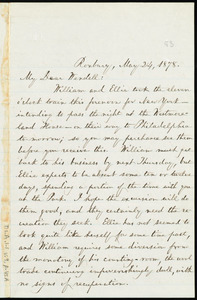 Roxbury, May 24, 1878.
My Dear Wendell:
William and Ellie took the eleven
o'clock train this forenoon for New York—
intending to pass the night at the Westmore-
land House—on their way to Philadelphia
to-morrow, so you may purchase see them
before you receive this. William must get
back to his business by next Thursday, but
Ellie expects to be absent some ten or twelve
days, spending a portion of the time with you
at the Park. I hope the excursion will do
them good, and they certainly need the re-
creation they seek. Ellie has not seemed to
look quite like herself for some time past,
and William requires some diversion from
the monotony of his counting-room, the wool
trade continuing unprovisingly dull, with
no signs of recuperation.